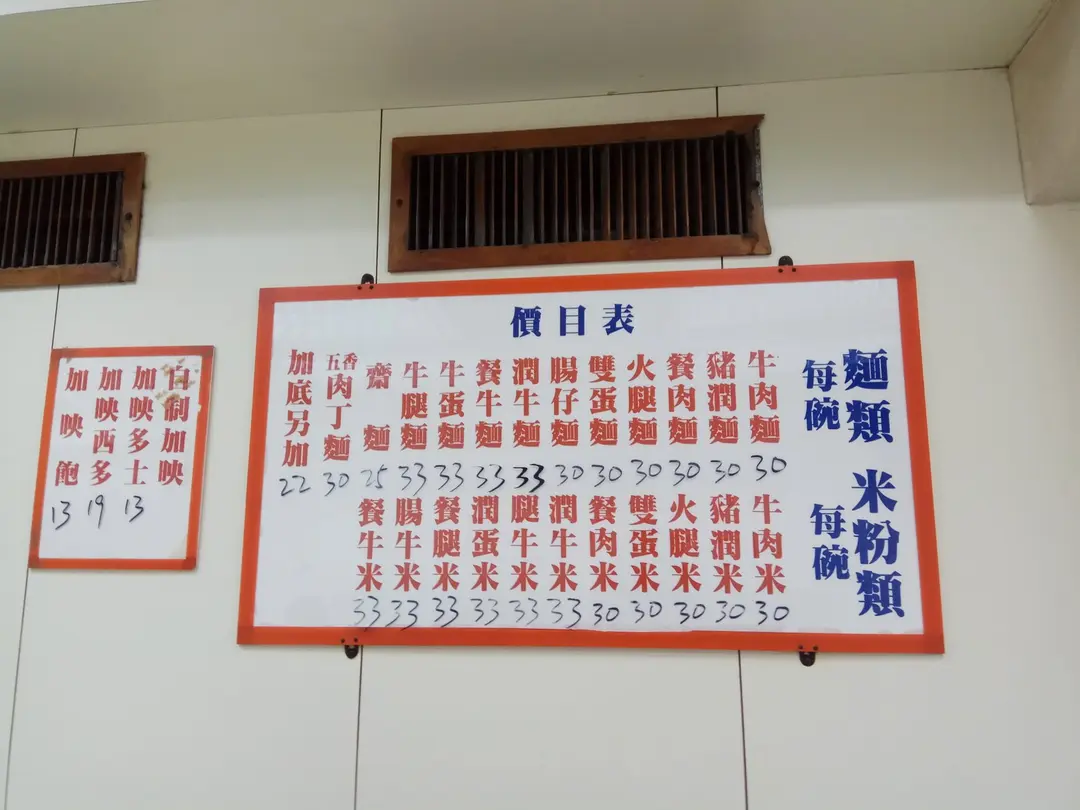 價目表
麵類 每碗
牛肉麵 30
豬潤麵 30
餐肉麵 30
火腿麵 30
雙蛋麵 30
腸仔麵 30
潤牛麵 33
餐牛麵 33
牛蛋麵 33
牛腿麵 33
齋麵 25
五香肉丁麵 30
加底另加 22
米粉類 每碗
牛肉米 30
豬潤米 30
火腿米 30
雙蛋米 30
餐肉米 30
潤牛米 33
腿牛米 33
潤蛋米 33
餐腿米 33
腸牛米 33
餐牛米 33
自制加映
加映多士 13
加映西多 19
加映飽 13